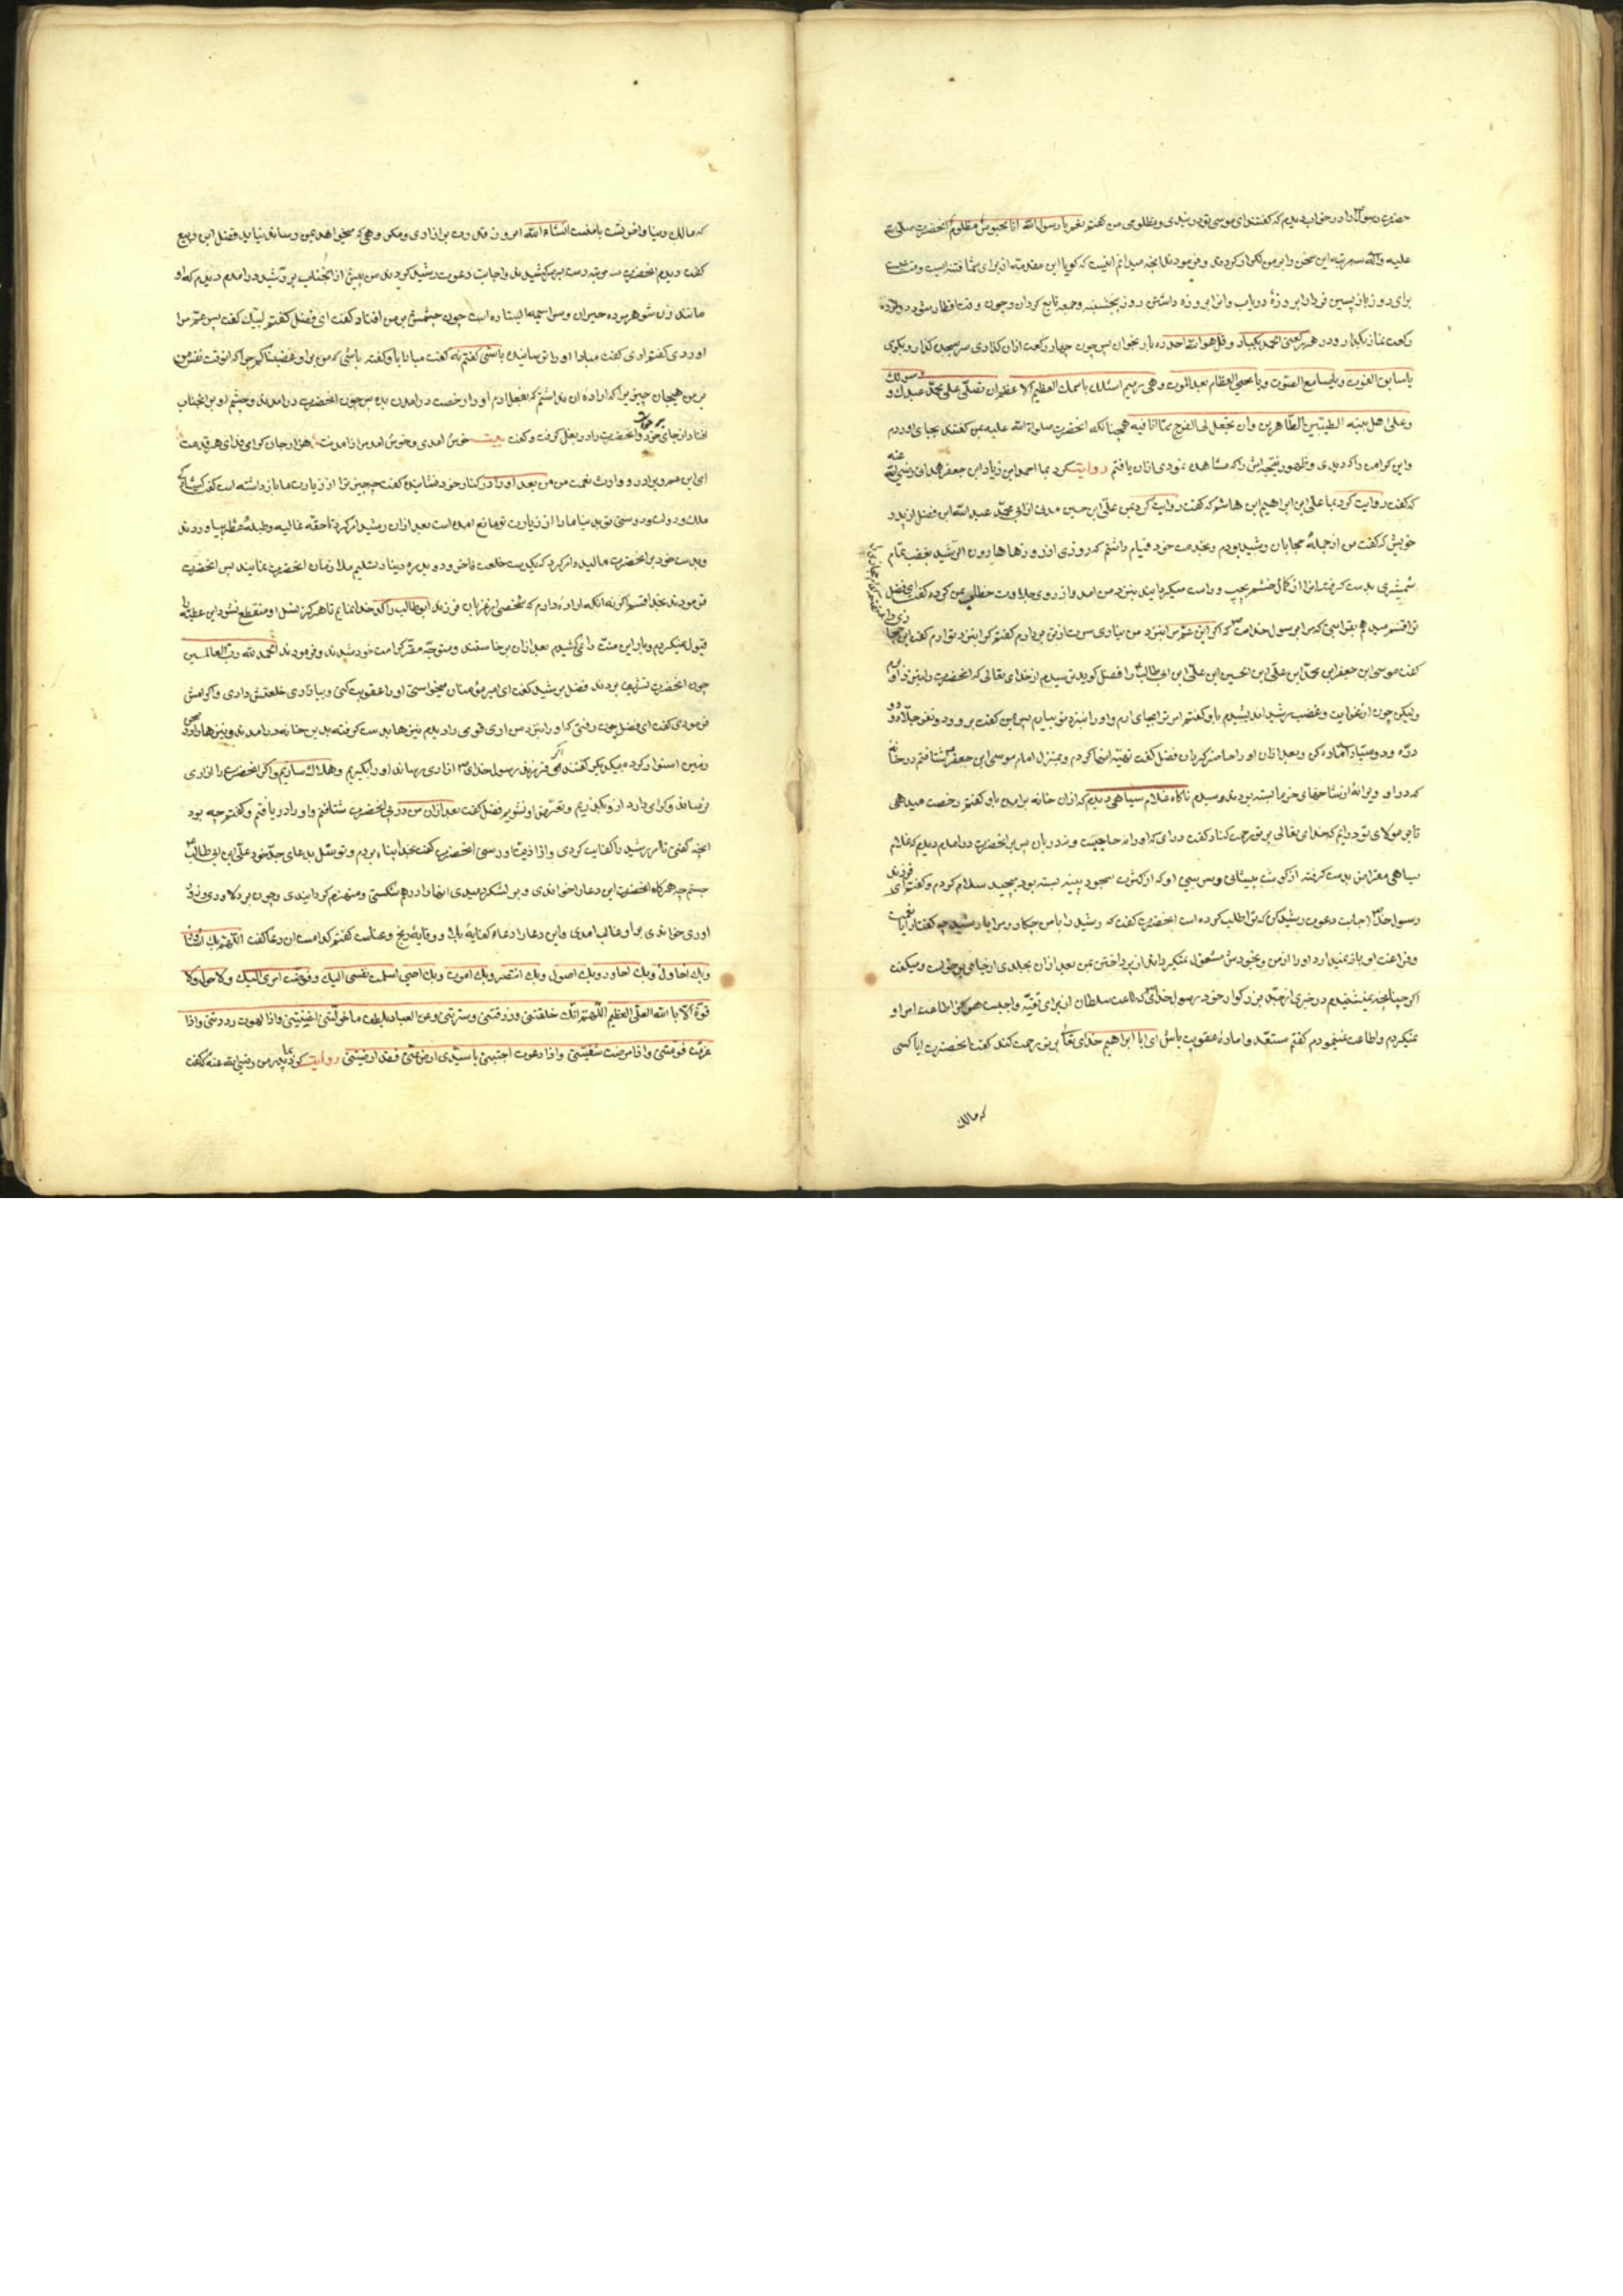 حضرت رسول را در خواب دیدم که گفتند ای موسی تو در بندی و مظلومی من گفتم نعم یا رسول الله انا محبوس مظلوم آنحضرت صلی الله
علیه وآله سه مرتبه این سخن را بر من تکرار کردند و فرمودند آنچه میدانم اینست که گویا این مقدمه از برای شما فتنه است و
برای روز باز پسین فردا را بروزهٔ دریاب وانرا بروزه داشتن روز پنجشنبه و جمعه تابع کردان و چون وقت افطار شود دوازده
رکعت نماز بگذار و در هر رکعتی الحمد یکبار و قل هو الله احد ده بار بخوان پس چون چهار رکعت از ان گذاری سر بسجده گذار و بگوی
یا سابق الفوت و یا سامع الصوت ویا محیی العظام بعد الموت وهی رمیم اسئلک باسمک العظیم الاعظم ان تصلی علی محمد عبدک و رسولک
وعلی اهل بیته الطیبین الطاهرین وان تجعل لی الفرج مما انا فیه همچنانکه آنحضرت صلوة الله علیه بمن گفتند بجای اوردم
واین کرامت را که دیدی و ظهور نتیجه اش را که مشاهده نمودی ازان یافتم روایت کرد بما احمد ابن زیاد ابن جعفر همدانی رضی الله عنه
که گفت روایت کرد بما علی ابن ابراهیم ابن هاشم که گفت روایت کرد بمن علی ابن حسین مدنی از ابی محمد عبد الله ابن فضل از پدر
خویش که گفت من از جملهٔ حجابان رشید بودم و بخدمت خود قیام داشتم که روزی از روزها هارون الرشید بغضب تمام
شمشیری بدست گرفته انرا از کمال خشم بچپ و راست میگردانید بنزد من امد واز روی جلادت خطاب بمن کرده گفت ای فضل
ترا قسم میدهم بقرابتی که مرا بر رسول خداست که اگر ابن عم مرا بنزد من نیاوری سرت ازتن بردارم گفتم کرا بنزد تو ارم گفت این حجازی را
گفت موسی ابن جعفر ابن محمد ابن علی ابن الحسین ابن علی ابن ابی طالب را فضل گوید بترسیدم از خدای تعالی که آنحضرت را بنزد او برم
ولیکن چون از عذاب و غضب رشید اندیشیدم باو گفتم امر ترا بجای ارم واو را بنزد تو بیارم پس بمن گفت برو و دو نفر جلاد و دو
درّه و دو میناز اماده کن وبعد ازان او را حاضر کردان فضل گفت تهیّه انها کردم و بمنزل امام موسی ابن جعفر شتافتم در خانهٔ
که در او ویرانهٔ از شاخهای خرما بسته بودند رسیدم ناگاه غلام سیاهی دیدم که ازان خانه برامد باو گفتم رخصت میدهی
تا بر مولای تو درایم که خدای تعالی بر تو رحمت کناد گفت درای که او را نه حاجبست و نه دربان پس بر آنحضرت درامدم دیدم که غلام
سیاهی مقراض بدست گرفته از گوشت پیشانی و سر بینی او که از کثرت سجود پینه بسته بود میچید سلام کردم و گفتم ای فرزند
رسول خدا اجابت دعوت رشید کن که ترا طلب کرده است آنحضرت گفت که رشید را با من چکار و مرا با رشید چه گفتار ایا نعمت
و فراغت او باز نمیدارد او را از من وبخودش مشغول نمیگرداند از پرداختن بمن بعد ازان بجلدی از جای برخواست و میگفت
اگر چنانچه نمیشنیدم در خبری از جدّ بزرگوار خود رسول خدای که طاعت سلطان از برای تقیّه واجبست هرگز اطاعت امر او
نمیکردم واطاعت نمینمودم گفتم مستعد و امادهٔ عقوبت باش ای ابا ابراهیم خدای تعالی بر تو رحمت کند گفت آنحضرت ایا کسی
که مالک
که مالک دنیا واخرتست با منست انشاء الله امروز قدرت بر ازادی و مکروهی که میخواهد بمن رساند نیابد فضل ابن ربیع
گفت دیدم آنحضرت سه مرتبه دست بسر کشیدند واجابت دعوت رشید کردند من پیش از آنجناب بر رشید درامدم دیدم که او
مانند زن شوهر مرده حیران وسراسیمه ایستاده است چون چشمش بر من افتاد گفت ای فضل گفتم لبیک گفت پسر عم مرا
اوردی گفتم اری گفت مبادا او را ترسانیده باشی گفتم نه گفت مبادا باو گفته باشی که من بر او غضبناکم چرا که انوقت نفس من
بر من هیجان چیزیرا که ارادهٔ ان نداشتم که بفعل ارم او را رخصت درامدن بده پس چون آنحضرت درامدند و چشم او بر آنجناب
افتاد از جای خود برخواست وآنحضرت را در بغل گرفت و گفت بیت خوش امدی و خوش امد مرا ز امدنت هزار جان گرامی فدای هر قدمت
ای ابن عم و برادر و وارث نعمت من من بعد او را در کنار خود نشانیده گفت چه چیز ترا از زیارت ما باز داشته است گفت
ملک و دولت و دوستی تو بدنیا مارا از زیارت تو مانع امده است بعد ازان رشید امر کرد تا حقّه غالیه وطبلهٔ عطر بیاوردند
وبدست خود بر آنحضرت مالید و امر کرد که یکدست خلعت فاخر و دو بدره دینار تسلیم ملازمان آنحضرت نمایند پس آنحضرت
فرمودند بخدا قسم اگر نه انکه ارادهٔ دارم که شخصی از عزبان فرزند ابوطالب را کدخدا نمایم تا هرگز نسل او منقطع نشود این عطیه را
قبول نمیکردم وبار این منّت را نمیکشیدم بعد ازان برخاستند و متوجه مقر کرامت خود شدند و فرمودند الحمد لله رب العالمین
چون آنحضرت تشریف بردند فضل بر شید گفت ای امیر مؤمنان میخواستی او را عقوبت کنی وبیازاری خلعتش دادی واکرامش
فرمودی گفت ای فضل چون رفتی که او را بنزد من اری قومی را دیدم نیزها بدست گرفته بدین خانه درامدند و نیزها را در
زمین استوار کرده بیکدیگر گفتند اگر فرزند رسول خدای را ازاری رساند او را بگیریم و هلاک سازیم واگر آنحضرت را ازاری
نرساند و گرامی دارد از او بگذریم و متعرض او نشویم فضل گفت بعد ازان من در پی آنحضرت شتافتم واو را دریافتم و گفتم چه بود
آنچه گفتی تا امر رشید را کفایت کردی واز اذیت او رستی آنحضرت گفت بخدا پناه بردم و توسّل بدعای جدّ خود علی ابن ابی طالب
جستم چه هرگاه آنحضرت این دعا را خواندی و بر لشکر دمیدی انها را درهم شکستی و منهزم گردانیدی وچون بر دلاوری زور
اوری خواندی بر او غالب امدی واین دعا را دعاء کفایهٔ بلا و وقایهٔ رنج و عناست گفتم کدامست ان دعا گفت اللهم بک
وبک احاول وبک احاور وبک اصول وبک انتصر وبک اموت وبک احیی اسلمت نفسی الیک وفوضت امری الیک ولا حول ولا
قوة الا بالله العلی العظیم اللهم انک خلقتنی ورزقتنی وسترتنی وعن العباد بلطف ما خولتنی اغنیتنی واذا هویت رددتنی واذا
عثرت قومتنی واذا مرضت شفیتنی واذا دعوت اجبتنی یا سیدی ارض عنی فقد ارضیتنی روایت کرد بما پدر من رضی الله عنه که گفت